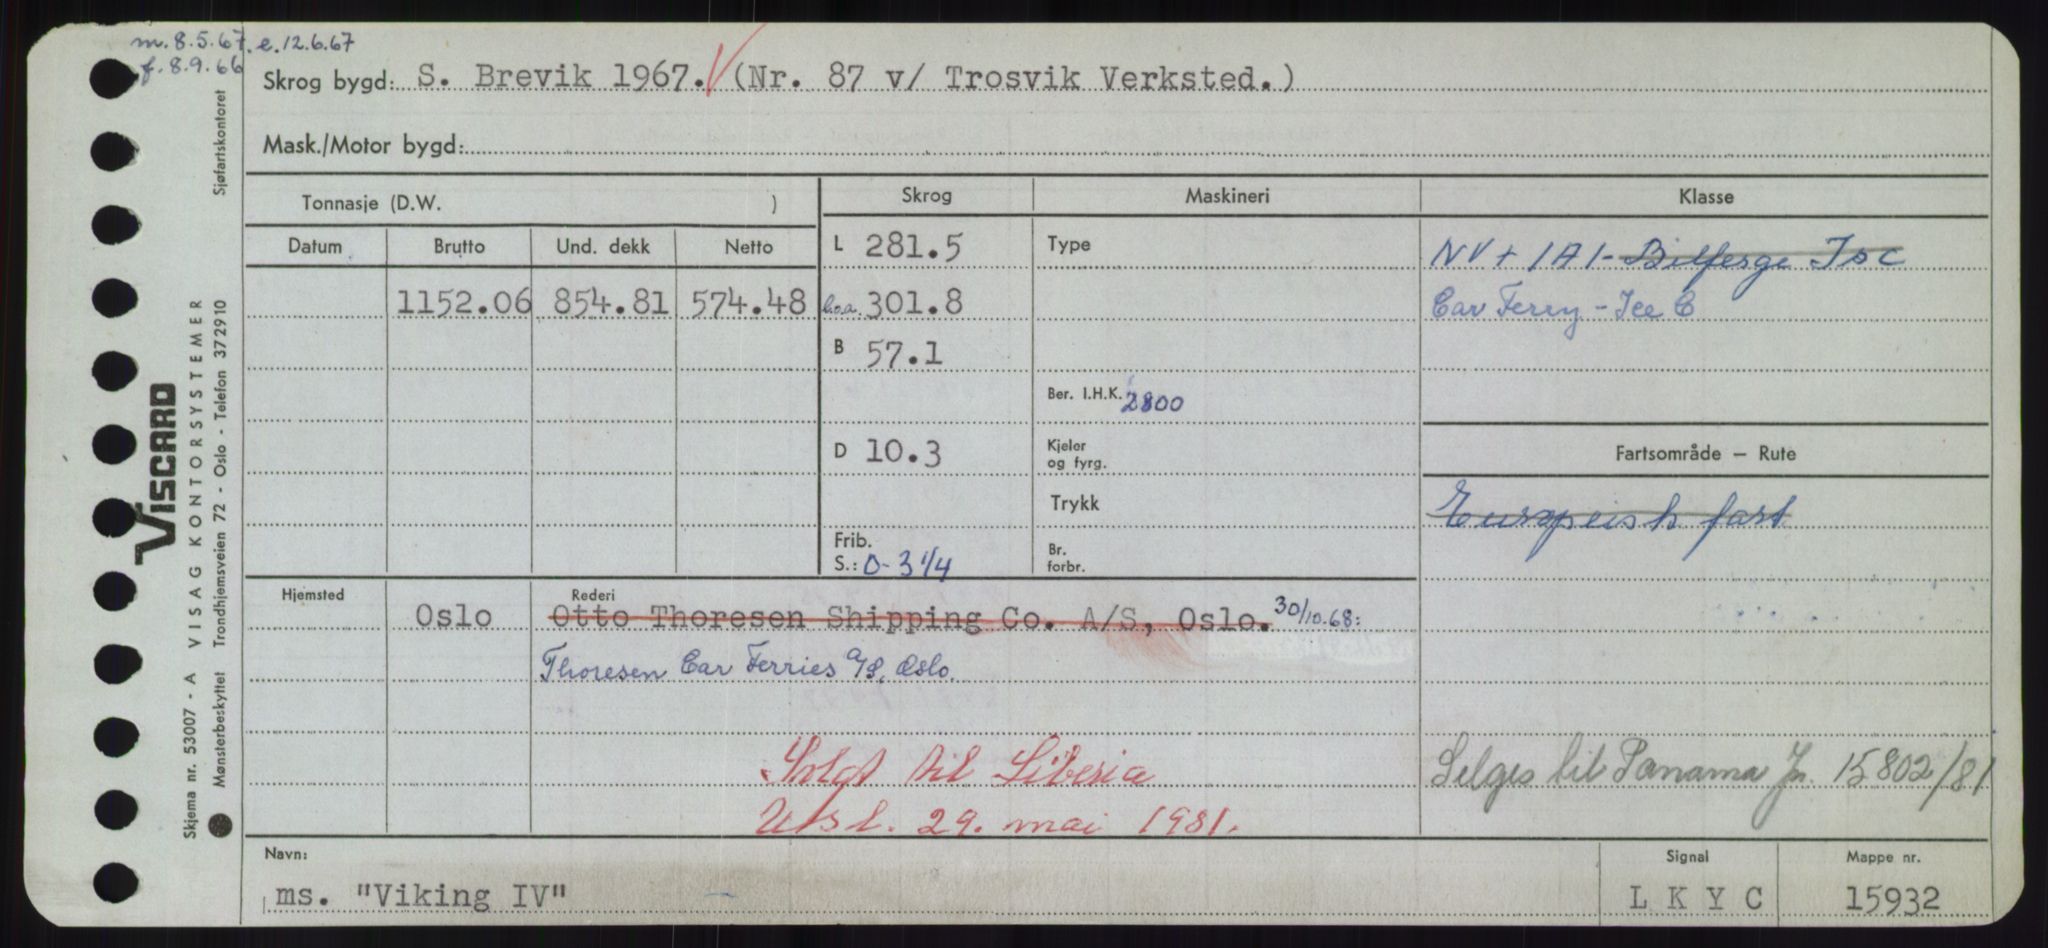 m. 8.5.67. e. 12.6.67
f. 8.9.66
Skrog bygd: S. Brevik 1967. (Nr. 87 v/ Trosvik Verksted.)
Mask./Motor bygd:
Tonnasje (D.W. )
Skrog Maskineri Klasse
Datum Brutto Und. dekk Netto
L 281.5 Type NV + 1A1 - Bilferge Is C
1152.06 854.81 574.48 l.o.a. 301.8 Car Ferry - Ice C
B 57.1
Ber. I.H.K. 2800
D 10.3 Kjeler og fyrg. Fartsområde – Rute
Trykk Europeisk fart
Frib. S.: 0-3 1/4 Br. forbr.
Hjemsted Rederi
Oslo Otto Thoresen Shipping Co. A/S, Oslo. 30/10.68:
Thoresen Car Ferries A/S, Oslo.
Solgt til Liberia Selges til Panama Jn. 15802/81
Utsl. 29. mai 1981.
Navn: Signal Mappe nr.
ms. "Viking IV" L K Y C 15932
VISCARD
Skjema nr. 53007 - A VISAG KONTORSYSTEMER
Mønsterbeskyttet Trondhjemsveien 72 - Oslo - Telefon 372910 Sjøfartskontoret